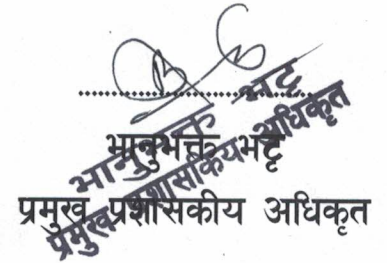 भानुभक्त भट्ट
प्रमुख प्रशासकीय अधिकृत
भानुभक्त भट्ट
प्रमुख प्रशासकिय अधिकृत